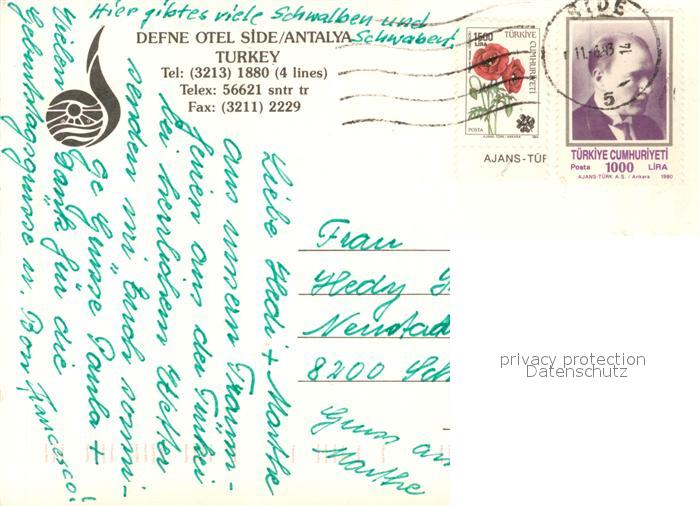 Hier gibt es viele Schwalben und
Schwaben!
DEFNE OTEL SİDE/ANTALYA
TURKEY
Tel: (3213) 1880 (4 lines)
Telex: 56621 sntr tr
Fax: (3211) 2229
1500
LİRA
TÜRKİYE
CUMHURİYETİ
POSTA
AJANS-TÜR
SİDE
11.-6.93
5
TÜRKİYE CUMHURİYETİ
Posta 1000 LİRA
AJANS-TÜRK A.S. / Ankara 1990
Liebe Hedi + Marthe
Aus unsern Traum-
ferien aus der Türkei
bei herrlichem Wetter
senden wir Euch sonni-
ge Grüsse Paula +
Vielen Dank für die
Geburtstagsgrüsse u. Bon Francesco!
Frau
Hedy
Neustad
8200 Sch
Gruss an
Marthe
privacy protection
Datenschutz